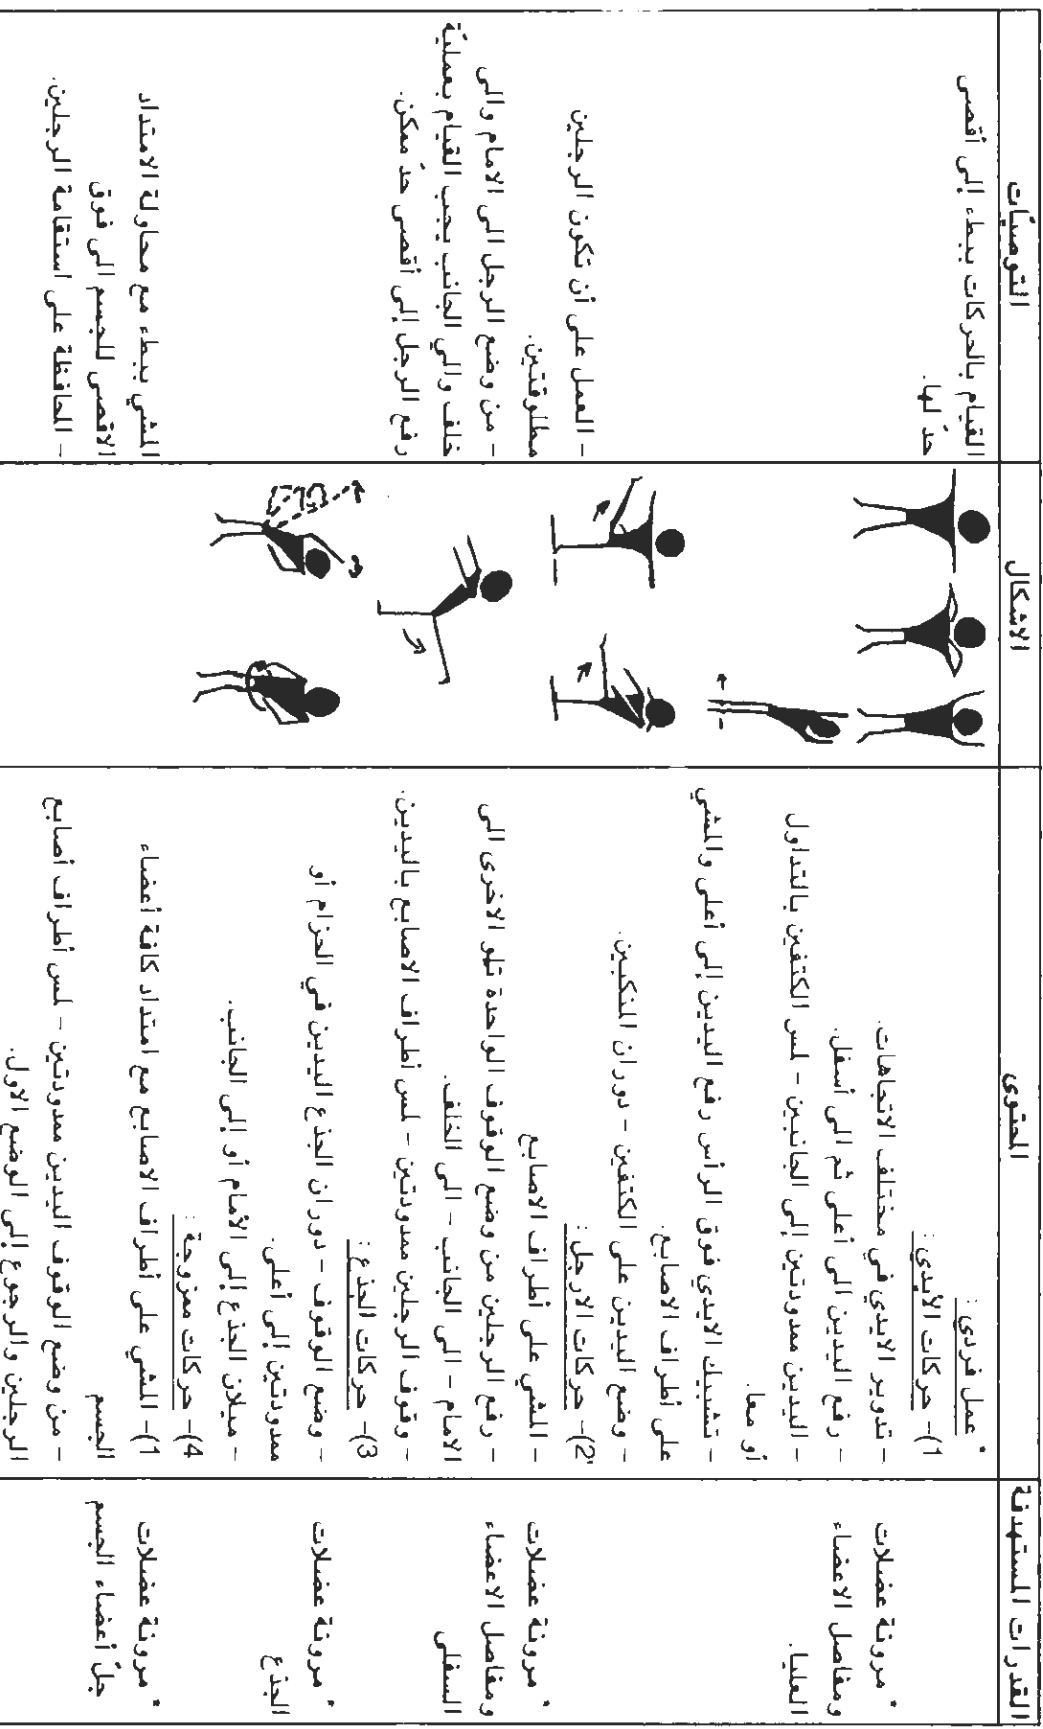 القدرات المستهدفة
المحتوى
الاشكال
التوصيّات
* مرونة عضلات
ومفاصل الاعضاء
العليا.
* مرونة عضلات
ومفاصل الاعضاء
السفلى
* مرونة عضلات
الجذع
* مرونة عضلات
جلّ أعضاء الجسم
* عمل فردي :
1)- حركات الأيدي :
- تدوير الايدي في مختلف الاتجاهات.
- رفع اليدين الى أعلى ثم الى أسفل.
- اليدين ممدودتين إلى الجانبين - لمس الكتفين بالتداول
أو معا.
- تشبيك الايدي فوق الرأس رفع اليدين إلى أعلى والمشي
على أطراف الاصابع.
- وضع اليدين على الكتفين - دوران المنكبين.
2)- حركات الارجل :
- المشي على أطراف الاصابع
- رفع الرجلين من وضع الوقوف الواحدة تلو الاخرى الى
الامام - الى الجانب - الى الخلف.
- وقوف الرجلين ممدودتين - لمس أطراف الاصابع باليدين.
3)- حركات الجذع :
- وضع الوقوف - دوران الجذع اليدين في الحزام أو
ممدودتين إلى أعلى.
- ميلان الجذع إلى الأمام أو إلى الجانب.
4)- حركات ممزوجة :
1)- المشي على أطراف الاصابع مع امتداد كافة أعضاء
الجسم
- من وضع الوقوف اليدين ممدودتين - لمس أطراف أصابع
الرجلين والرجوع إلى الوضع الاول.
القيام بالحركات ببطء إلى أقصى
حدّ لها.
- العمل على أن تكون الرجلين
مطلوقتين.
- من وضع الرجل الى الامام والى
خلف والي الجانب يجب القيام بعمليّة
رفع الرجل إلى أقصى حدّ ممكن.
المشي ببطء مع محاولة الامتداد
الاقصى للجسم الى فوق
- المحافظة على استقامة الرجلين.